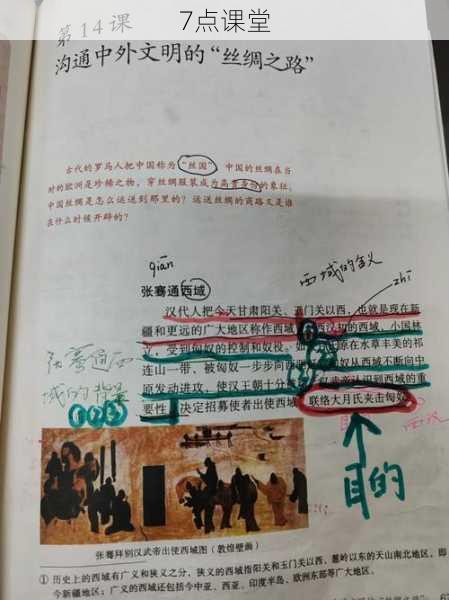 7点课堂
第14课
沟通中外文明的“丝绸之路”
古代的罗马人把中国称为“丝国”，中国的丝绸在当
时的欧洲是珍稀之物，穿丝绸服装成为高贵身份的象征。
中国丝绸是怎么运送到那里的？运送丝绸的商路又是谁
在什么时候开辟的？
qiān
西域的含义
zhī
张骞通西域
汉代人把今天甘肃阳关、玉门关以西，也就是现在新
疆和更远的广大地区称作西域 汉初的西域，小国林
立，受到匈奴的控制和奴役。 原在水草丰美的祁
连山一带，被匈奴一步步向西 匈奴从西域不断向中
原发动进攻，使汉王朝十分 汉武帝认识到西域的重
要性，决定招募使者出使西域，联络大月氏夹击匈奴
张骞通西
域的背景
①②③
目的
张骞拜别汉武帝出使西域图（敦煌壁画）
① 历史上的西域有广义和狭义之分，狭义的西域指阳关和玉门关以西，葱岭以东的天山南北地区，即
今新疆地区；广义的西域还包括今中亚、西亚、印度半岛、欧洲东部等广大地区。